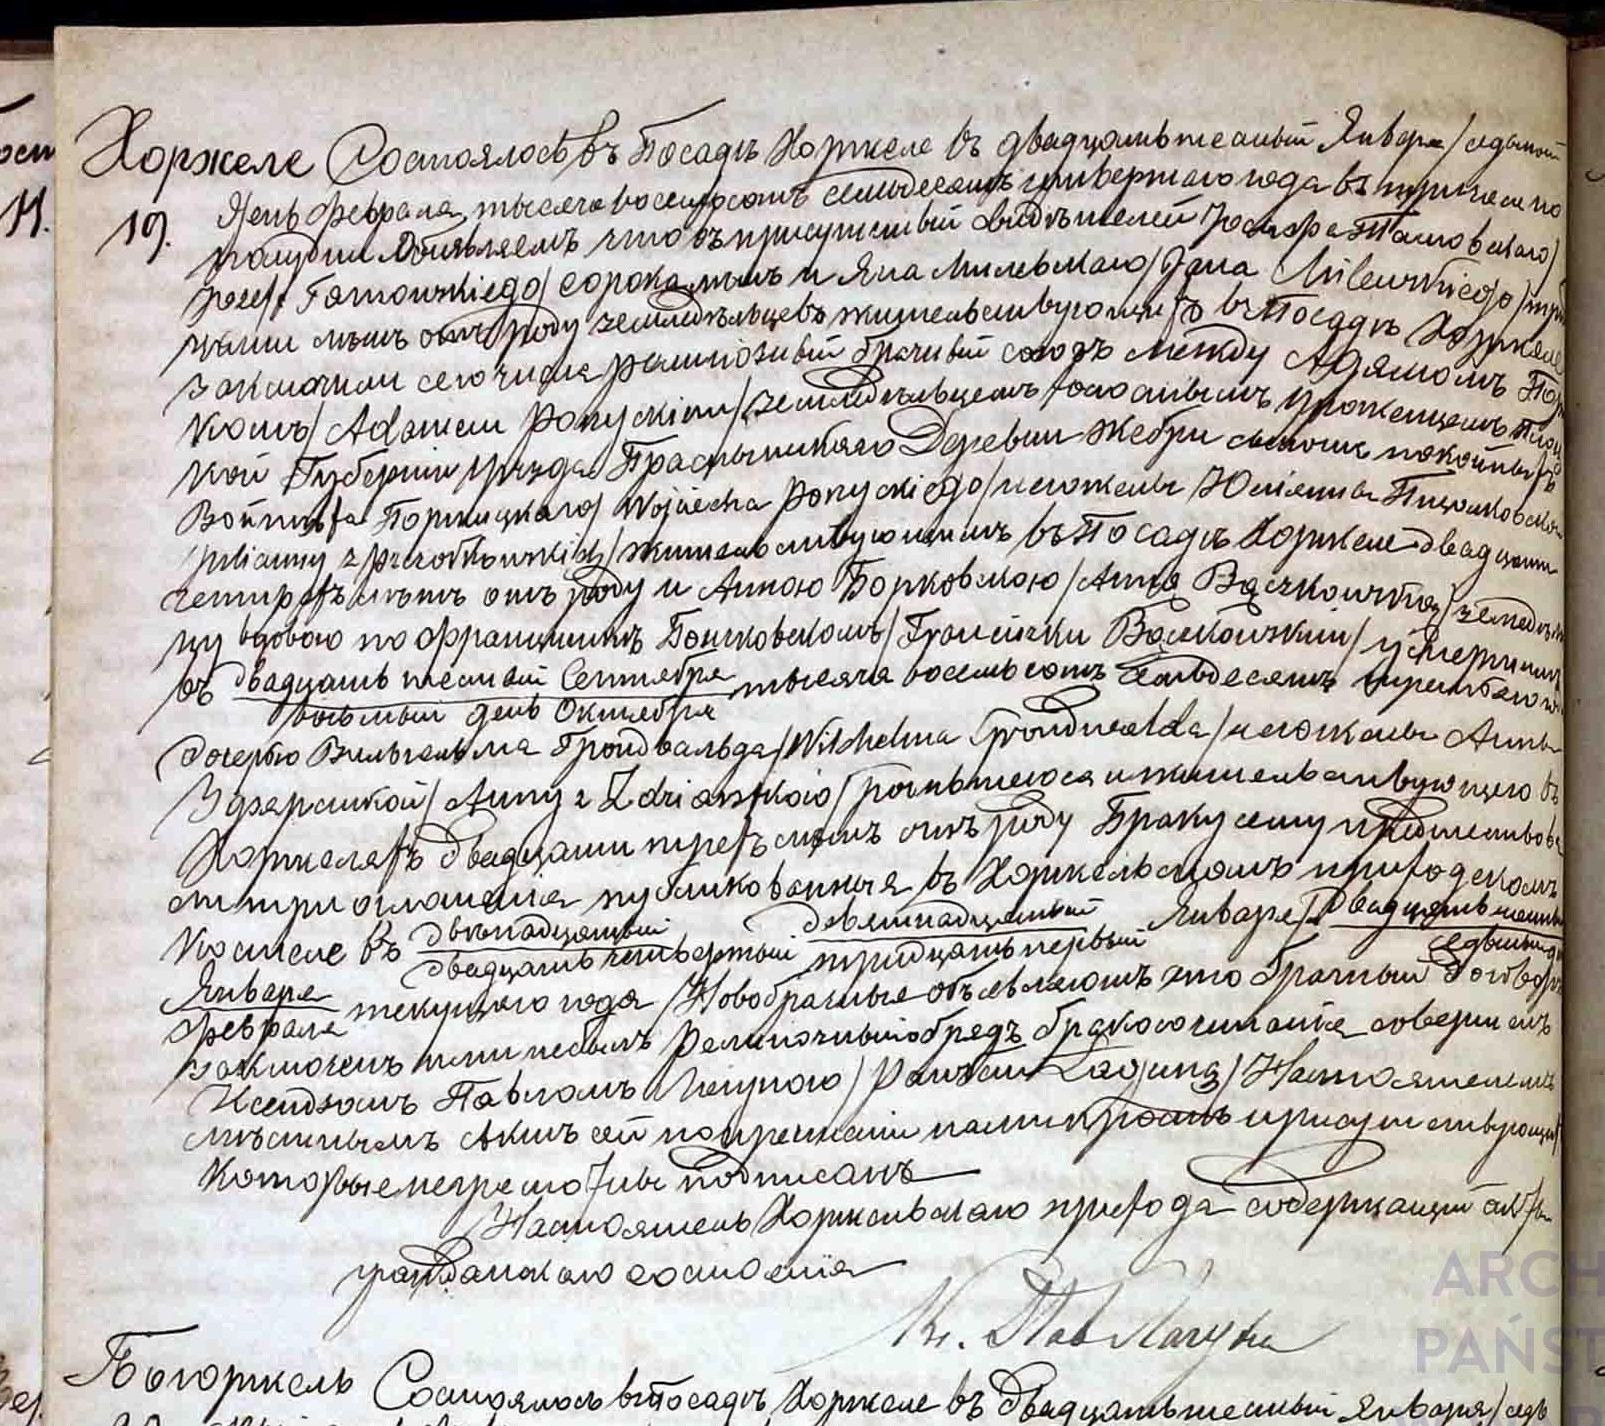 Хоржеле Состоялось въ Посадѣ Хоржеле въ двадцать шестый Января /седьмой
19. день Февраля тысяча восемьсотъ семьдесятъ четвертаго года въ три часа по
полудни Объявляемъ что въ присутствіи свидѣтелей Іосифа Тамовскаго/
Józefa Tamowskiego/ сорока лѣтъ и Яна Милевскаго/ Jana Milewskiego/
лѣтъ отъ роду земледѣльцевъ жительствующихъ въ Посадѣ Хоржеле
заключили сего числа религіозный брачный союзъ между Адамомъ
комъ/ Adamem Porzyckim/ земледѣльцемъ холостымъ уроженцемъ
кой Губерніи уѣзда Праснышскаго Деревни Жебри сыномъ покойныхъ
Войцѣха Поржицкаго/ Wojciecha Porzyckiego/ и его жены Юліанны
Julianny z / жительствующимъ въ Посадѣ Хоржеле двадцати
четырехъ лѣтъ отъ роду и Анною Бонковскою / Anną Bączkowską/
вдовою по Францишкѣ Бончковскомъ/ Franciszku Bączkowskim/ умершимъ
въ двадцать шестый Сентября
восьмый день Октября тысяча восемьсотъ семьдесятъ третьяго
дочерью Вильгельма Грондвальда/ Wilchelma Grondwalda/ и его жены Анны
Здзярской/ Anny z / родившегося и жительствующего въ
Хоржеляхъ двадцати трехъ лѣтъ отъ роду Браку сему предшествова
ли три оглашенія публикованныя въ Хоржельскомъ приходскомъ
Костеле въ двѣнадцатый девятнадцатый Января / двадцать шестый
двадцать четвертый тридцать первый седьмый
Января
Февраля текущаго года / Новобрачные объявляютъ что брачный договоръ
заключенъ ими небылъ Религіозный обрядъ бракосочитанія совершенъ
Ксендзомъ Павломъ Лагуною / Pawłem Laguną/ Настоятелемъ
мѣстнымъ Актъ сей по прочтеніи нами присутствующимъ
которые неграмотны подписанъ
Настоятель Хоржельскаго прихода содержащій акты
гражданскаго состоянія
Кс. Пав Лагуна
Богоржель Состоялось въ Посадѣ Хоржеле въ двадцать шестый Января/ седь
ARCH
PAŃST